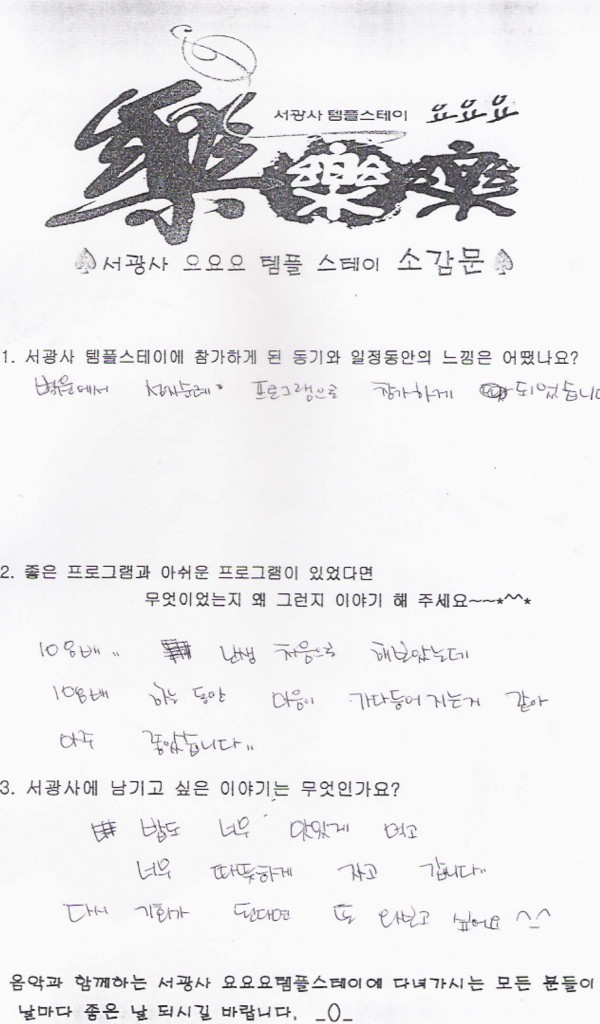 樂
서광사 템플스테이 요요요
樂 樂
서광사 요요요 템플 스테이 소감문
1. 서광사 템플스테이에 참가하게 된 동기와 일정동안의 느낌은 어땠나요?
프로그램으로 참가하게 되었습니다
2. 좋은 프로그램과 아쉬운 프로그램이 있었다면
무엇이었는지 왜 그런지 이야기 해 주세요~~*^^*
108배.. 난생 처음으로 해보았는데
108배 하는 동안 마음이 가다듬어 지는거 같아
아주 좋았습니다..
3. 서광사에 남기고 싶은 이야기는 무엇인가요?
밥도 너무 맛있게 먹고
너무 따뜻하게 자고 갑니다..
다시 기회가 된다면 또 와보고 싶어요 ^_^
음악과 함께하는 서광사 요요요템플스테이에 다녀가시는 모든 분들이
날마다 좋은 날 되시길 바랍니다. _()_